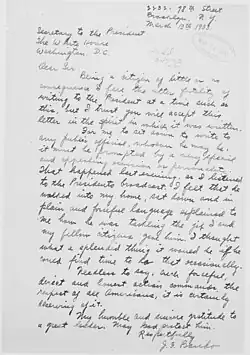 2232. 78th Street
Brooklyn. N.Y.
March 13th 1933.
Secretary to the President
The White House
Washington D.C.
Dear Sir.
Being a citizen of little or no
consequence I feel the utter futility of
writing to the President at a time such as
this, but I trust you will accept this
letter in the spirit in which it was written.
For me to sit down to write to
any public official, whoever he may be,
it must be prompted by a very special
and appealing occasion or personality.
That happened last evening, as I listened
to the President's broadcast. I felt that he
walked into my home, sat down and in
plain and forceful language explained to
me how he was tackling the job I and
my fellow citizens gave him. I thought
what a splendid thing it would be if he
could find time to do that occasionally.
Needless to say, such forceful,
direct and honest action commands the
respect of all Americans, it is certainly
deserving of it.
My humble and sincere gratitude to
a great leader. May God protect him.
Respectfully
J. F.